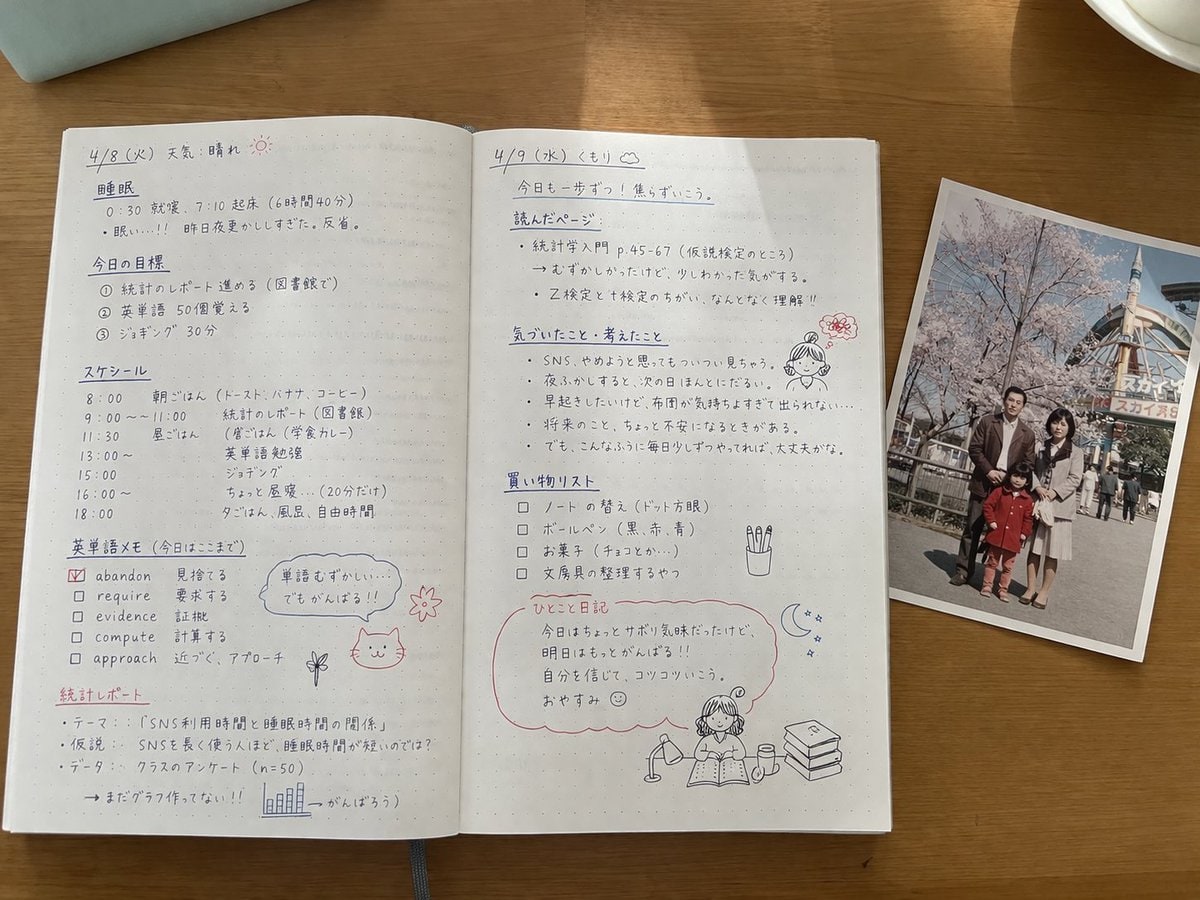 4/8 (火) 天気:晴れ
睡眠
0:30 就寝、7:10 起床 (6時間40分)
・眠い…!! 昨日夜更かししすぎた。反省。
今日の目標
① 統計のレポート進める (図書館で)
② 英単語 50個覚える
③ ジョギング 30分
スケシール
8:00 朝ごはん (トースト、バナナ、コーヒー)
9:00~~11:00 統計のレポート (図書館)
11:30 昼ごはん (学食カレー)
13:00~ 英単語勉強
15:00 ジョデング
16:00~ ちょっと昼寝…(20分だけ)
18:00 夕ごはん、風呂、自由時間
英単語メモ (今日はここまで)
abandon 見捨てる
require 要求する
evidence 証拠
compute 計算する
approach 近づく、アプローチ
単語むずかしい…
でもがんばる!!
統計レポート
・テーマ::「SNS利用時間と睡眠時間の関係」
・仮説:・ SNSを長く使う人ほど、睡眠時間が短いのでは?
・データ:・ クラスのアンケート (n=50)
→ まだグラフ作ってない!! → がんばろう)
4/9 (水) くもり
今日も一歩ずつ! 焦らずいこう。
読んだページ:
・統計学入門 p.45-67 (仮説検定のところ)
→ むずかしかったけど、少しわかった気がする。
・Z検定とt検定のちがい、なんとなく理解!!
気づいたこと・考えたこと
・SNS、やめようと思ってもついつい見ちゃう。
・夜ふかしすると、次の日ほんとにだるい。
・早起きしたいけど、布団が気持ちよすぎて出られない…
・将来のこと、ちょっと不安になるときがある。
・でも、こんなふうに毎日少しずつやってれば、大丈夫かな。
買い物リスト
ノートの替え (ドット方眼)
ボールペン (黒、赤、青)
お菓子 (チョコとか…)
文房具の整理するやつ
ひとこと日記
今日はちょっとサボり気味だったけど、
明日はもっとがんばる!!
自分を信じて、コツコツいこう。
おやすみ
スカイ
スカイ